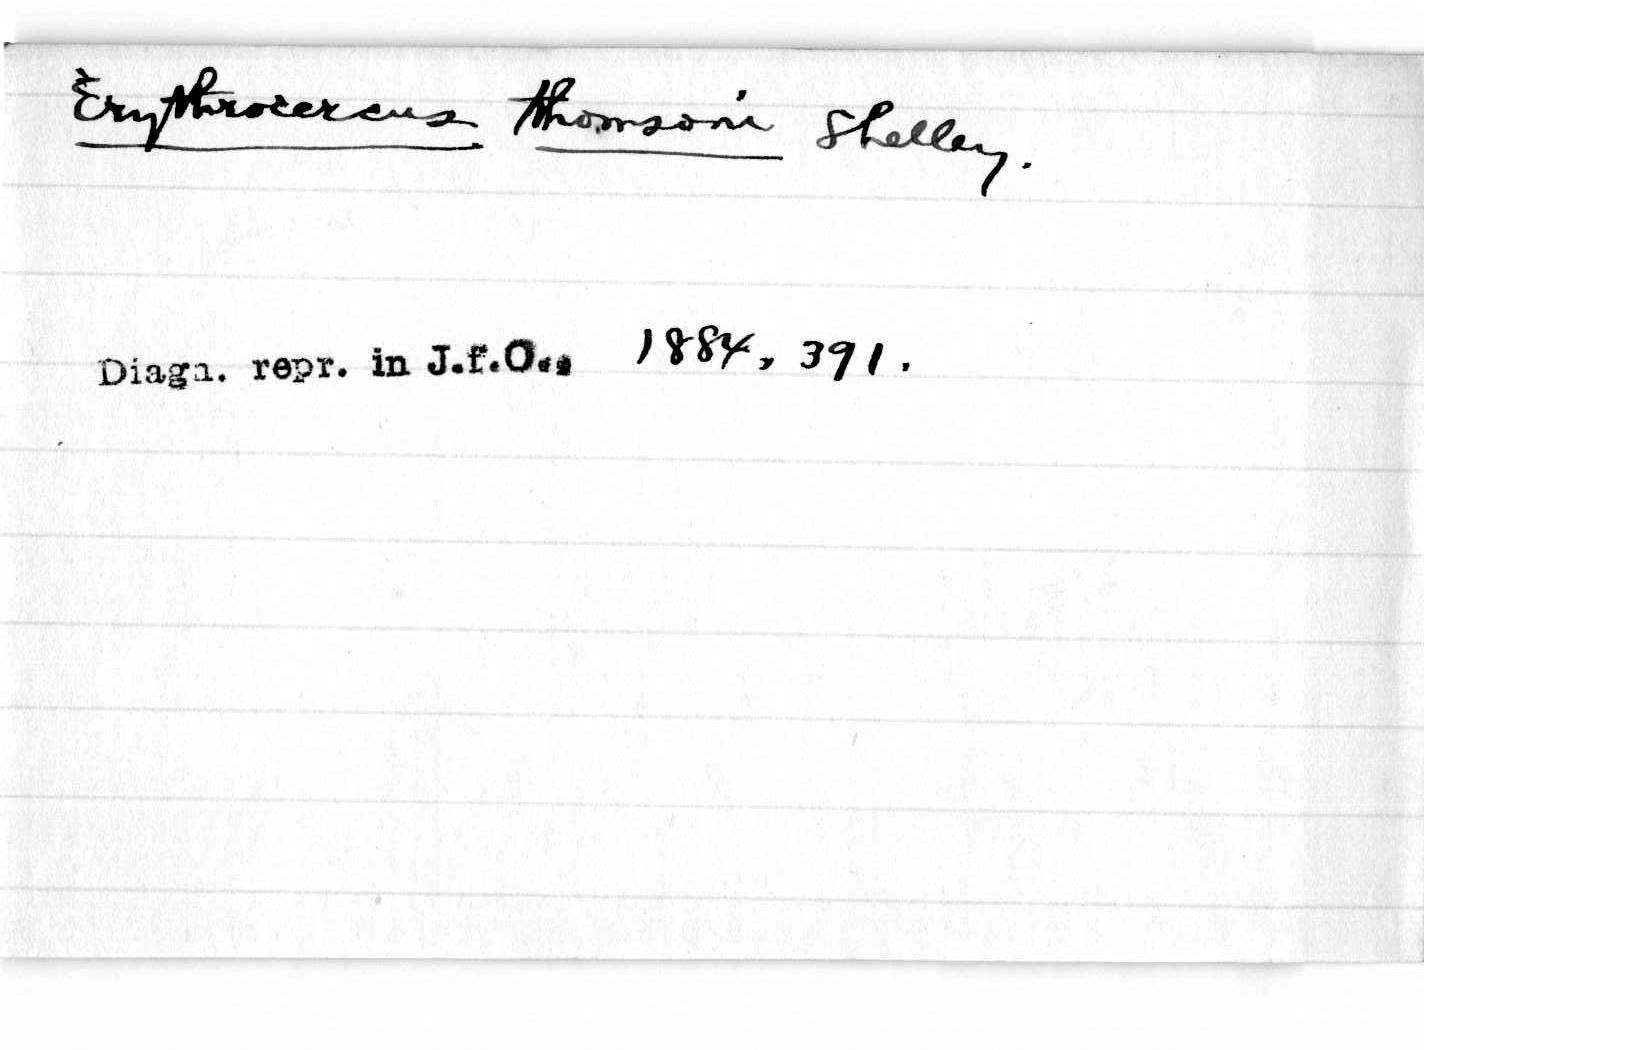 Erythrocercus thomsoni Shelley.
Diagn. repr. in J.f.O., 1884, 391.